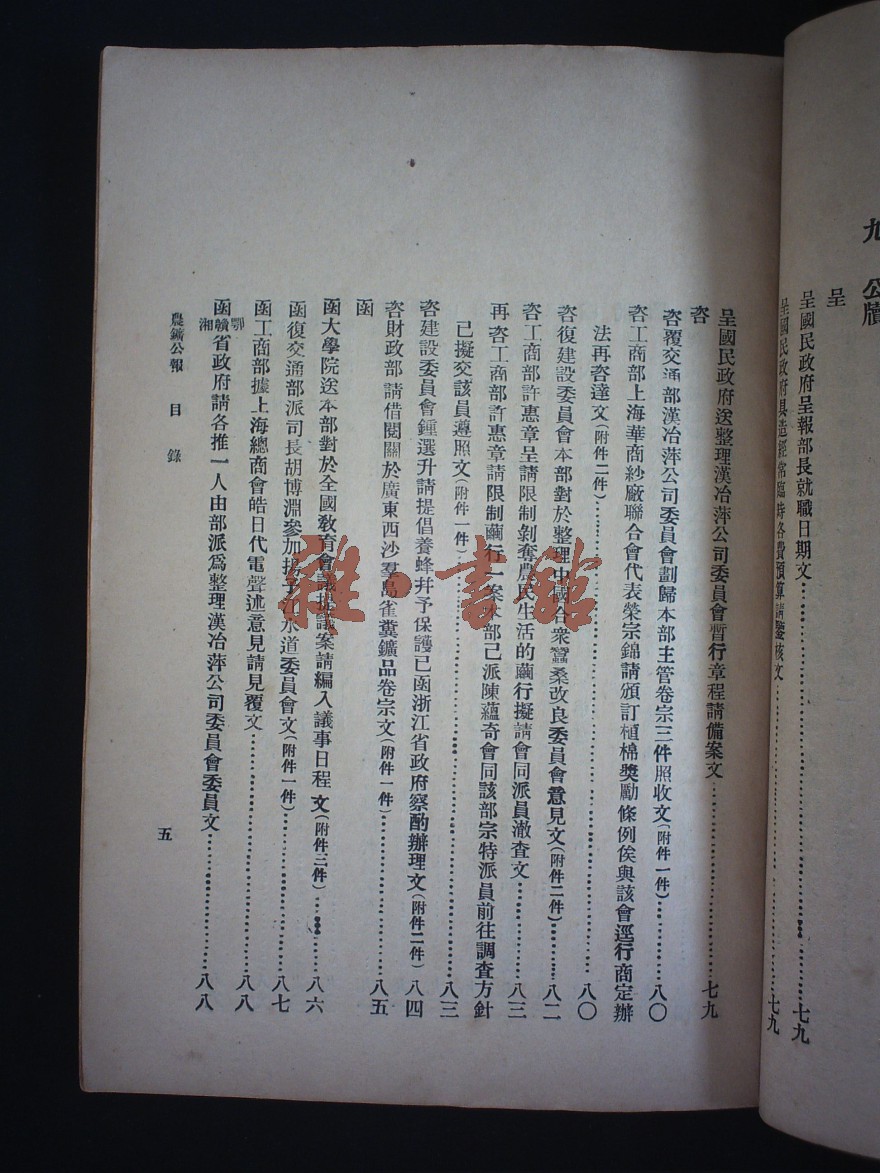 九 公牘
呈
呈國民政府呈報部長就職日期文…………七九
呈國民政府具造經常臨時各費預算請鑒核文…………七九
呈國民政府送整理漢冶萍公司委員會暫行章程請備案文…………七九
咨
咨覆交通部漢冶萍公司委員會劃歸本部主管卷宗三件照收文(附件一件)…………八〇
咨工商部上海華商紗廠聯合會代表榮宗錦請頒訂植棉獎勵條例俟與該會逕行商定辦
法再咨達文(附件二件)…………八〇
咨復建設委員會本部對於整理中國合衆蠶桑改良委員會意見文(附件二件)…………八二
咨工商部許惠章呈請限制剝奪農民生活的繭行擬請會同派員澈查文…………八三
再咨工商部許惠章請限制繭行一案本部已派陳蘊奇會同該部宗特派員前往調查方針
已擬交該員遵照文(附件一件)…………八三
咨建設委員會鍾選升請提倡養蜂幷予保護已函浙江省政府察酌辦理文(附件二件)八四
咨財政部請借閱關於廣東西沙羣島雀糞鑛品卷宗文(附件一件)…………八五
函
函大學院送本部對於全國敎育會議提議案請編入議事日程文(附件三件)…………八六
函復交通部派司長胡博淵參加揚子江水道委員會文(附件一件)…………八七
函工商部據上海總商會皓日代電聲述意見請見覆文…………八八
函鄂贛湘省政府請各推一人由部派爲整理漢冶萍公司委員會委員文…………八八
農鑛公報 目錄
五
雜·書館